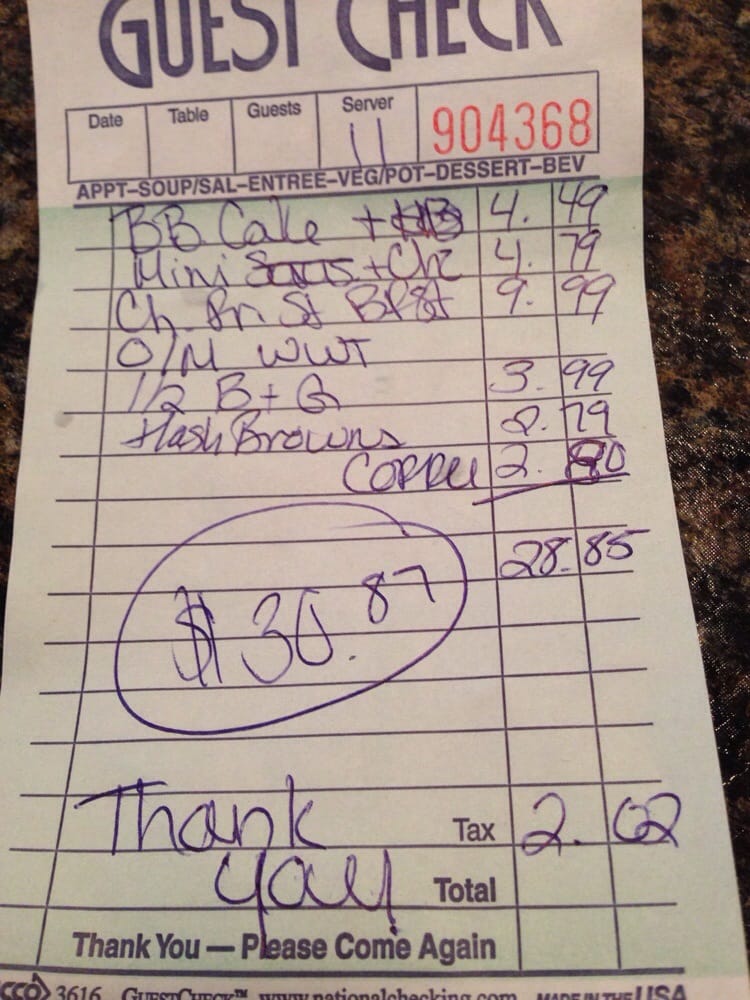 GUEST CHECK
Date Table Guests Server 11 904368
APPT–SOUP/SAL–ENTREE–VEG/POT–DESSERT–BEV
BB Cake + 4. 49
Mini + Chz 4. 79
Ch. Fri St BRft 9. 99
O/M WWT
1/2 B + G 3. 99
Hash Browns 2. 79
COFFEE 2. 80
28. 85
$30.87
Thank Tax 2. 02
you Total
Thank You — Please Come Again
CCO 3616 GUESTCHECK™ www.nationalchecking.com MADE IN THE USA